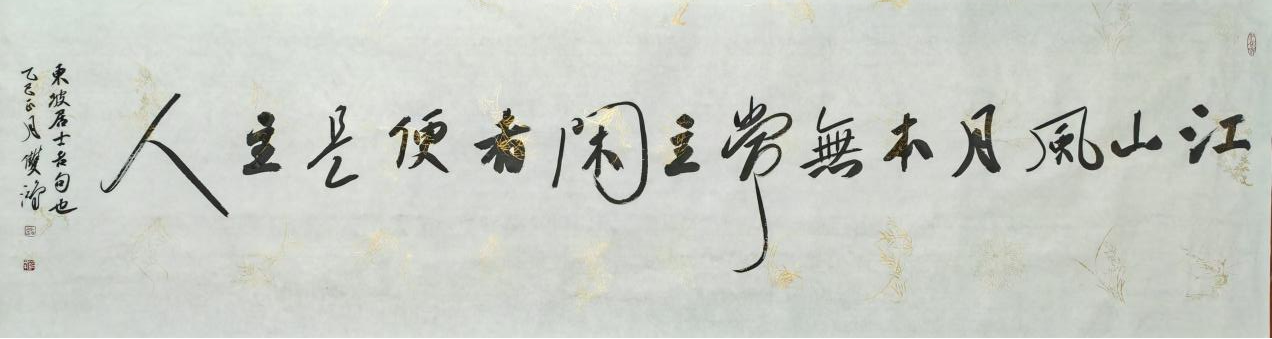 江山風月本無常主閑者便是主人
東坡居士名句也
乙巳正月雙